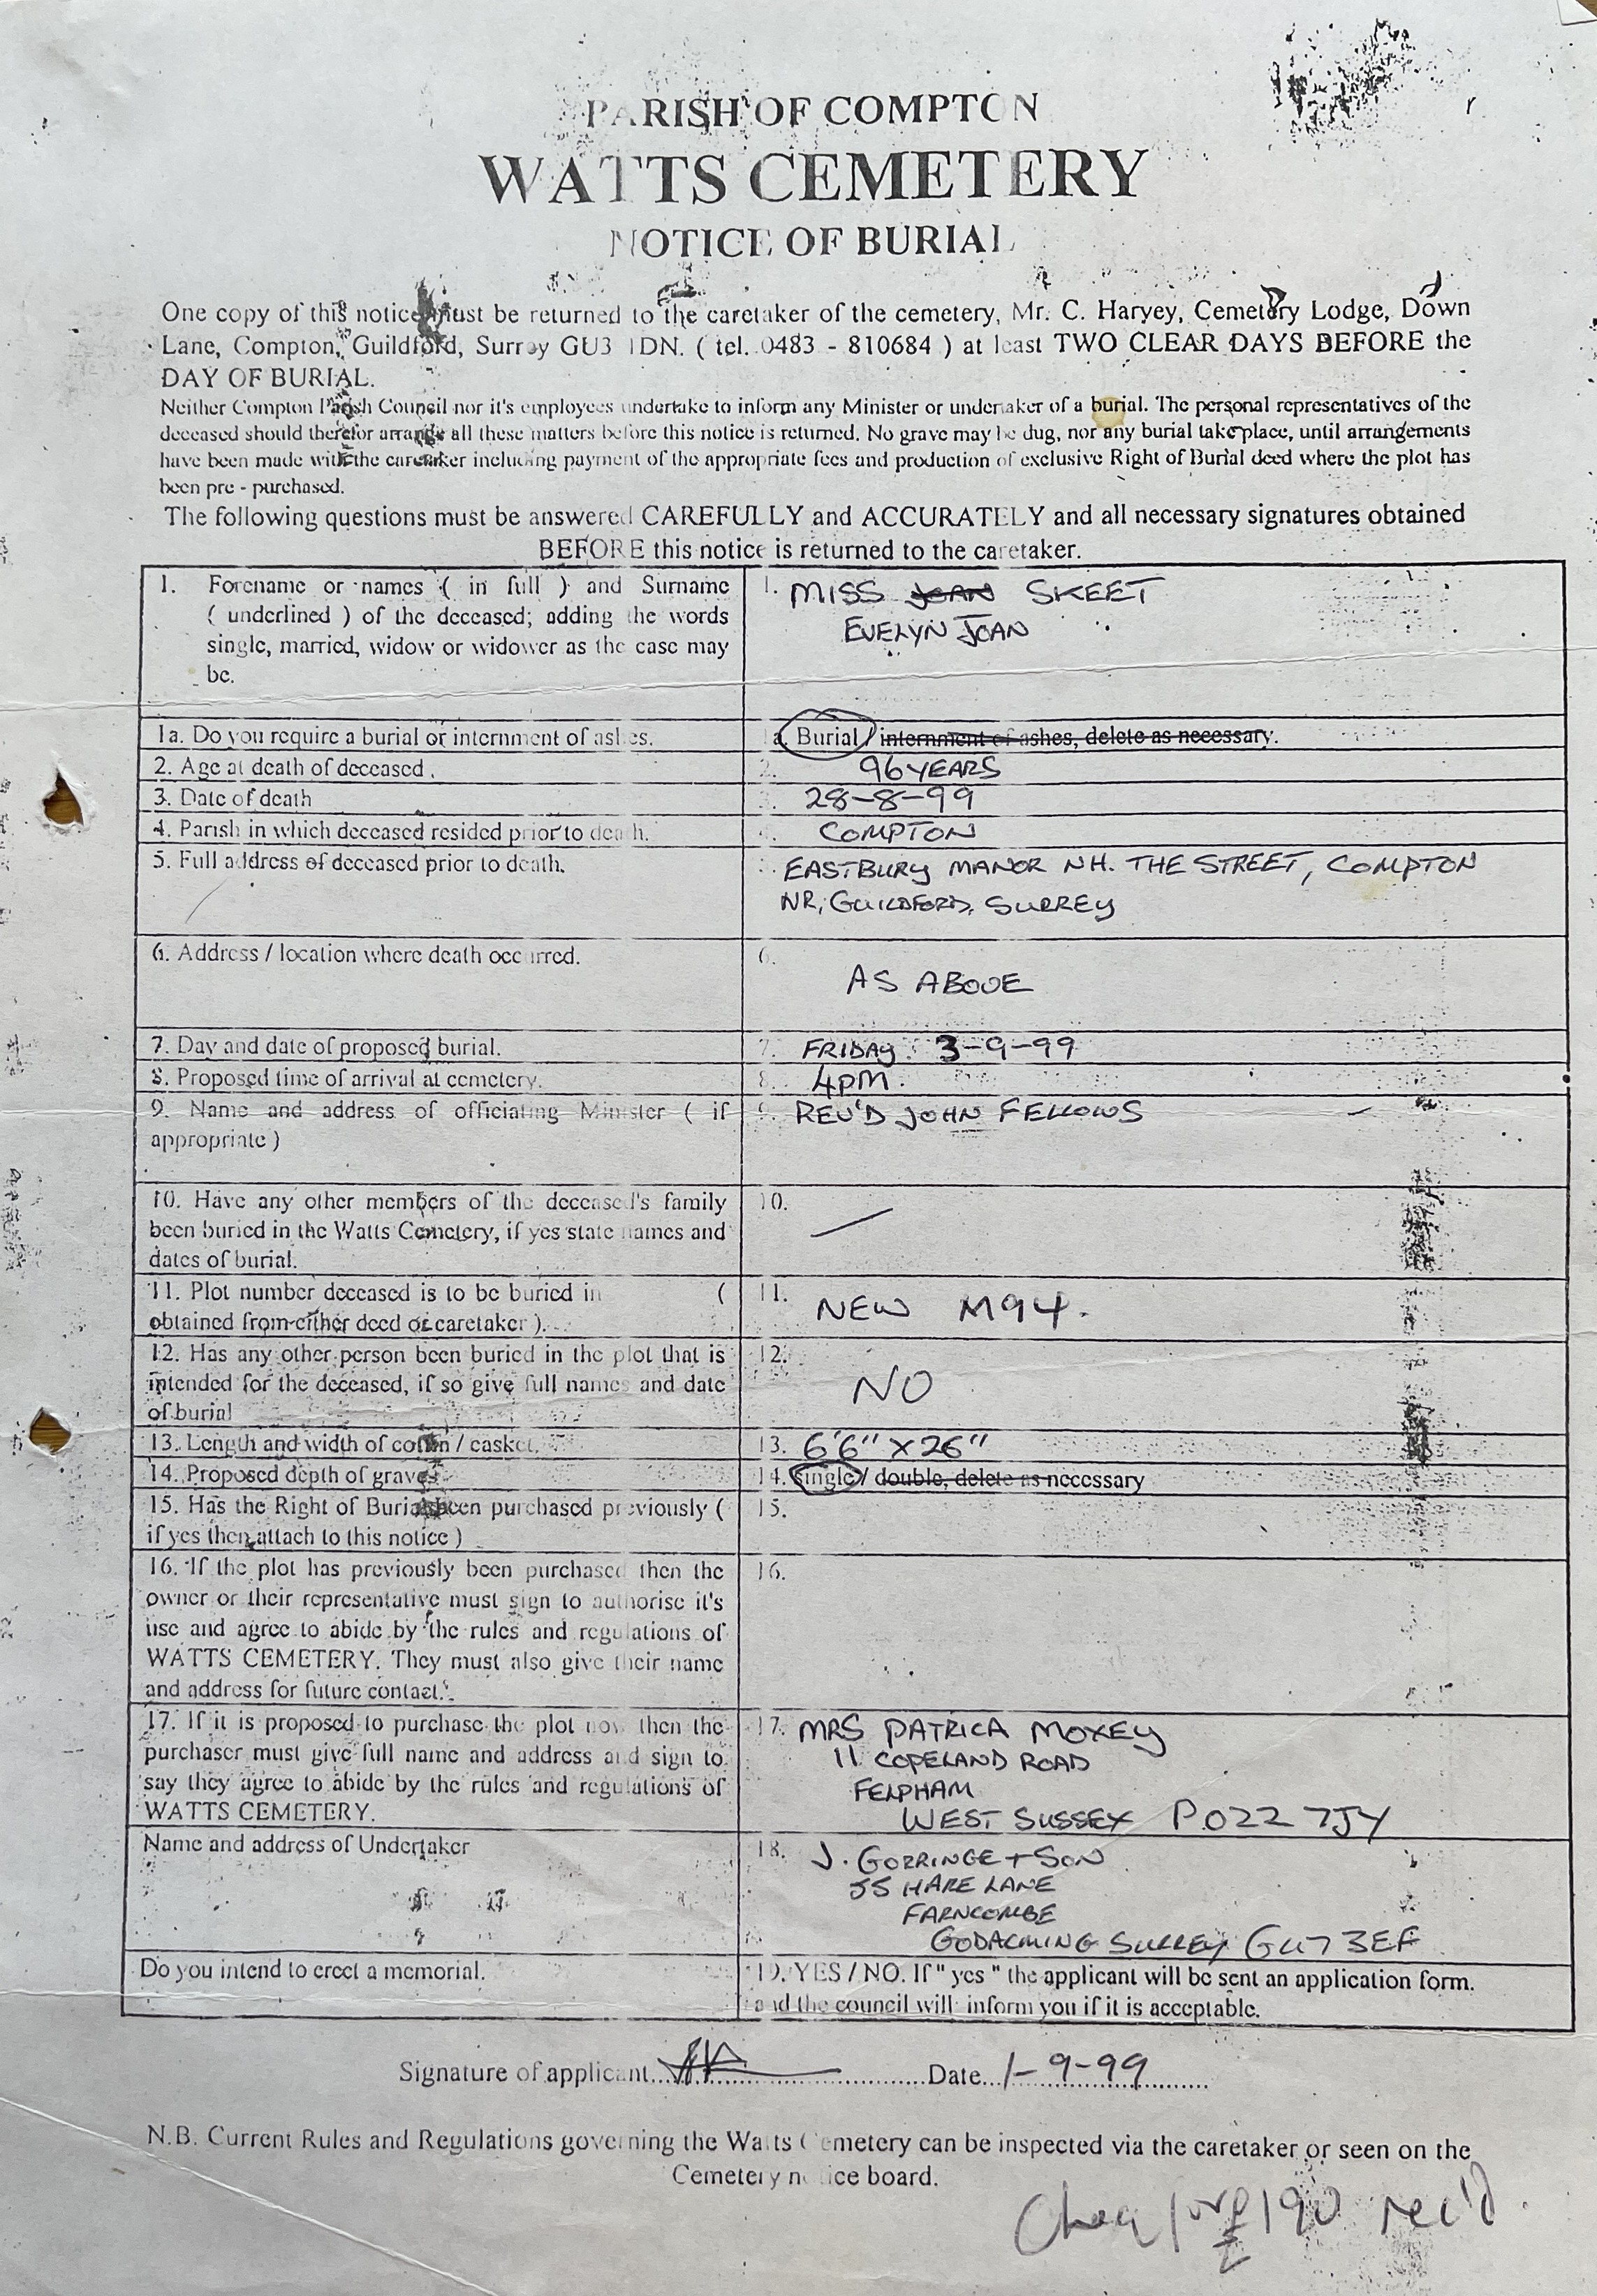 PARISH OF COMPTON
WATTS CEMETERY
NOTICE OF BURIAL
One copy of this notice must be returned to the caretaker of the cemetery, Mr. C. Harvey, Cemetery Lodge, Down
Lane, Compton, Guildford, Surrey GU3 1DN. ( tel. 0483 - 810684 ) at least TWO CLEAR DAYS BEFORE the
DAY OF BURIAL.
Neither Compton Parish Council nor it's employees undertake to inform any Minister or undertaker of a burial. The personal representatives of the
deceased should therefor arrange all these matters before this notice is returned. No grave may be dug, nor any burial take place, until arrangements
have been made with the caretaker including payment of the appropriate fees and production of exclusive Right of Burial deed where the plot has
been pre - purchased.
The following questions must be answered CAREFULLY and ACCURATELY and all necessary signatures obtained
BEFORE this notice is returned to the caretaker.
1. Forename or names ( in full ) and Surname
( underlined ) of the deceased; adding the words
single, married, widow or widower as the case may
be.
1. MISS JOAN SKEET
EVELYN JOAN
1a. Do you require a burial or internment of ashes.
1a. Burial / internment of ashes, delete as necessary.
2. Age at death of deceased.
2. 96 YEARS
3. Date of death
3. 28-8-99
4. Parish in which deceased resided prior to death.
4. COMPTON
5. Full address of deceased prior to death.
5. EASTBURY MANOR NH. THE STREET, COMPTON
NR, GUILDFORD, SURREY
6. Address / location where death occurred.
6.
AS ABOVE
7. Day and date of proposed burial.
7. FRIDAY 3-9-99
8. Proposed time of arrival at cemetery.
8. 4PM.
9. Name and address of officiating Minister ( if
appropriate )
9. REV'D JOHN FELLOWS
10. Have any other members of the deceased's family
been buried in the Watts Cemetery, if yes state names and
dates of burial.
10.
11. Plot number deceased is to be buried in (
obtained from either deed or caretaker ).
11. NEW M94.
12. Has any other person been buried in the plot that is
intended for the deceased, if so give full names and date
of burial
12.
NO
13. Length and width of coffin / casket.
13. 6'6" x 26"
14. Proposed depth of grave.
14. single / double, delete as necessary
15. Has the Right of Burial been purchased previously (
if yes then attach to this notice )
15.
16. If the plot has previously been purchased then the
owner or their representative must sign to authorise it's
use and agree to abide by the rules and regulations of
WATTS CEMETERY. They must also give their name
and address for future contact.
16.
17. If it is proposed to purchase the plot now then the
purchaser must give full name and address and sign to
say they agree to abide by the rules and regulations of
WATTS CEMETERY.
17. MRS PATRICA MOXEY
11 COPELAND ROAD
FELPHAM
WEST SUSSEX PO22 7JY
Name and address of Undertaker
18. J. GORRINGE + SON
55 HARE LANE
FARNCOMBE
GODALMING SURREY GU7 3EF
Do you intend to erect a memorial.
19. YES / NO. If " yes " the applicant will be sent an application form.
and the council will inform you if it is acceptable.
Signature of applicant Date 1-9-99
N.B. Current Rules and Regulations governing the Watts Cemetery can be inspected via the caretaker or seen on the
Cemetery notice board.
Cheq for £190 rec'd.